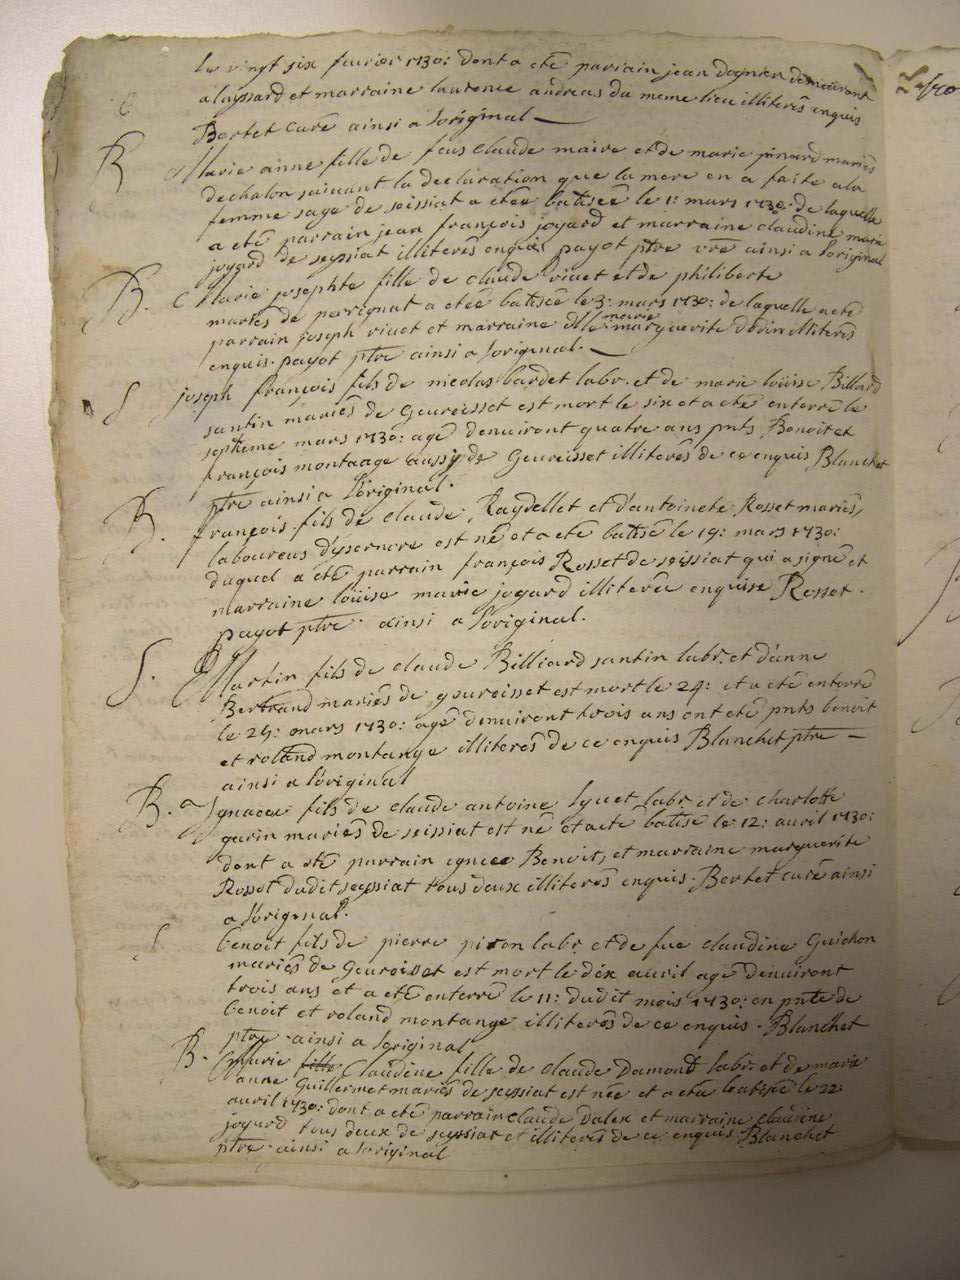 le vingt six feurier 1730: dont a eté parrain jean demeurant
a layssard et marraine laurence andreas du meme lieu illiterés enquis
Bertet curé ainsi a loriginal
B Marie anne fille de feus Claude maire et de marie pinard mariés
de chalon suivant la declaration que la mere en a faite a la
femme sage de seissiat a etée batisée le 1: mars 1730: de laquelle
a eté parrain jean françois joyard et marraine claudine marie
joyard de seyssiat illiterés enquis payot ptre vre ainsi a loriginal
B. Marie josephte fille de claude viuet et de philiberte
mariés de perrignat a etée batisée le 3: mars 1730: de laquelle a eté
parrain joseph viuet et marraine dlle marie marguerite dodin illiterés
enquis. payot ptre ainsi a loriginal.
S joseph françois fils de nicolas bardet labr. et de marie loüise Billard
santin mariés de Geureisset est mort le six et a eté enterré le
septieme mars 1730: agé denuiront quatre ans pnts Benoit et
françois montaage aussy de Geureisset illiterés de ce enquis Blanchet
ptre ainsi a loriginal.
B. françois fils de claude Raydellet et d'antoinete Rosset mariés,
laboureus d'ysernore est né et a eté batisé le 19: mars 1730:
duquel a eté parrain françois Rosset de seissiat qui a signé et
marraine loüise marie joyard illiterée enquise Rosset.
payot ptre. ainsi a loriginal.
S. Martin fils de claude Billiard santin labr. et d'anne
Bertrand mariés de geureisset est mort le 24: et a eté enterré
le 25: mars 1730: agé denuiront trois ans ont eté pnts benoit
et roland montange illiterés de ce enquis Blanchet ptre
ainsi a loriginal
B. Ignace fils de claude antoine lyuet labr. et de charlotte
garin mariés de seissiat est né et a eté batisé le 12: auril 1730:
dont a eté parrain ignace Benoit, et marraine marguerite
Rosset dudit seyssiat tous deux illiterés enquis. Bertet curé ainsi
a loriginal.
S benoit fils de pierre piron labr. et de fue claudine Guichon
mariés de Geureisset est mort le dix auril agé denuiront
trois ans et a eté enterré le 11: dudit mois 1730: en pnte de
benoit et roland montange illiterés de ce enquis. Blanchet
ptre. ainsi a loriginal
B. Marie fille Claudine fille de claude Damond labr. et de marie
anne Guillermet mariés de seyssiat est née et a eté batisée le 22
auril 1730: dont a eté parrain claude Dalex et marraine claudine
joyard tous deux de seyssiat et illiterés de ce enquis. Blanchet
ptre. ainsi a loriginal